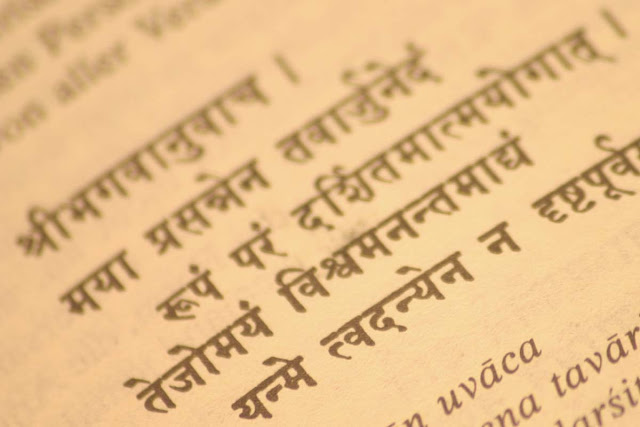 aller
श्रीभगवानुवाच ।
मया प्रसन्नेन तवार्जुनेदं
रूपं परं दर्शितमात्मयोगात् ।
तेजोमयं विश्वमनन्तमाद्यं
यन्मे त्वदन्येन न दृष्टपूर्व
uvāca
ena tavār
darśit